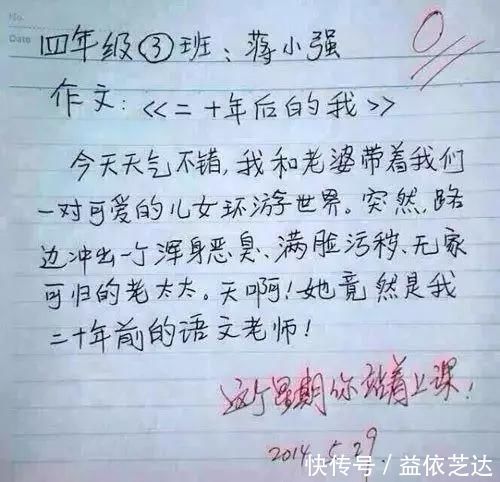 No.
Date
四年级③班：蒋小强
0
作文：《二十年后的我》
今天天气不错，我和老婆带着我们
一对可爱的儿女环游世界。突然，路
边冲出一个浑身恶臭、满脸污秽、无家
可归的老太太。天啊！她竟然是我
二十年前的语文老师！
这个星期你站着上课！
2014.5.29
快传号／益依芝达